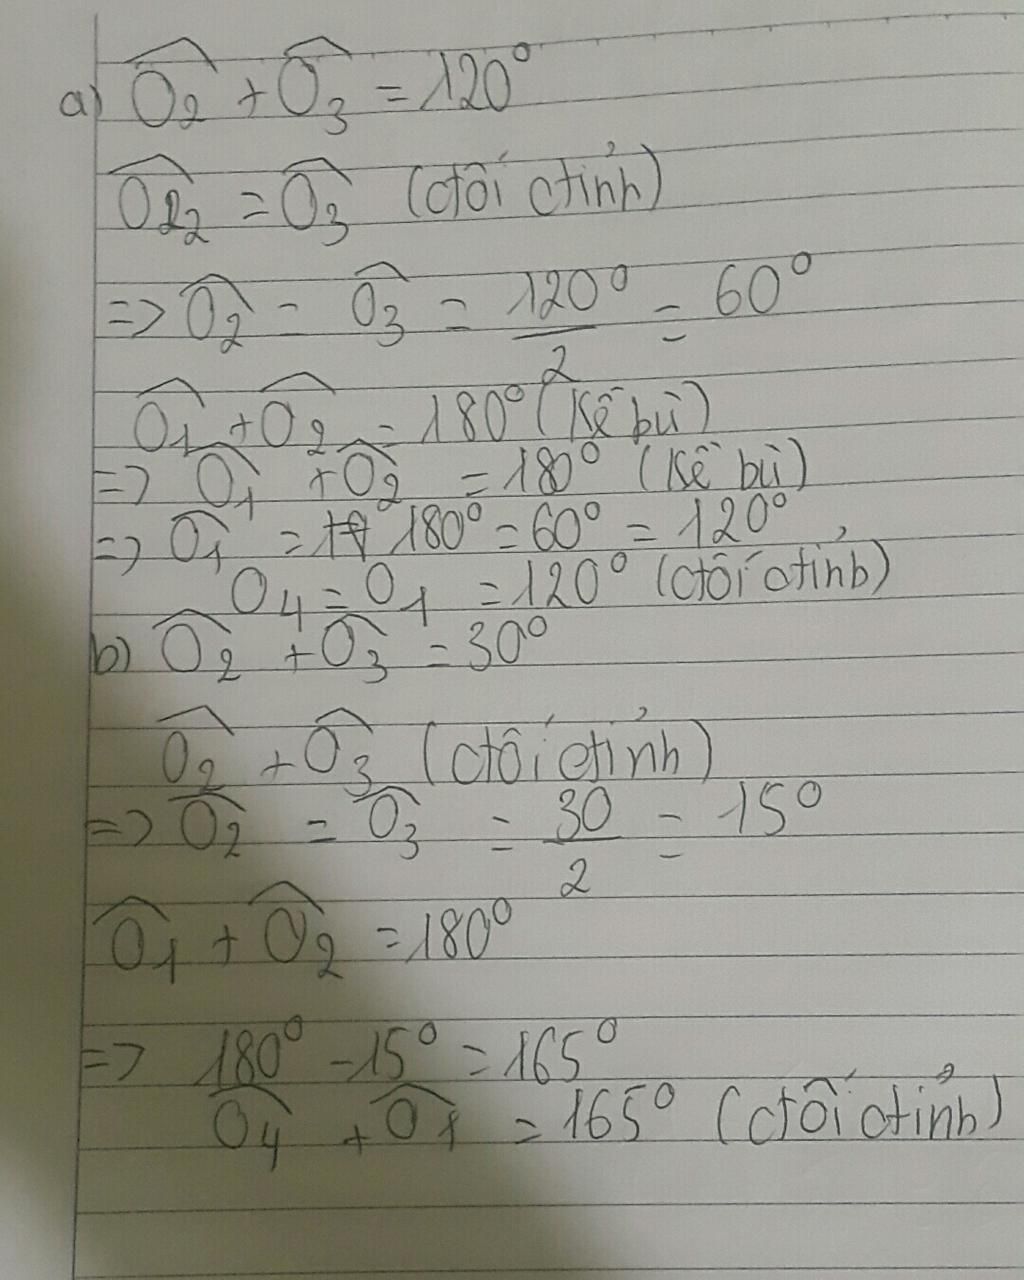 a) Ô₂ + Ô₃ = 120°
Ô₂₂ = Ô₃ (đối đỉnh)
=> Ô₂ = Ô₃ = 120°/2 = 60°
Ô₁ + Ô₂ = 180° (Kề bù)
=> Ô₁ + Ô₂ = 180° (Kề bù)
=> Ô₁ = 180° = 60° = 120°
O₄ = O₁ = 120° (đối đỉnh)
b) Ô₂ + Ô₃ = 30°
Ô₂ + Ô₃ (đối đỉnh)
=> Ô₂ = Ô₃ = 30/2 = 15°
Ô₁ + Ô₂ = 180°
=> 180° - 15° = 165°
Ô₄ + Ô₁ = 165° (đối đỉnh)